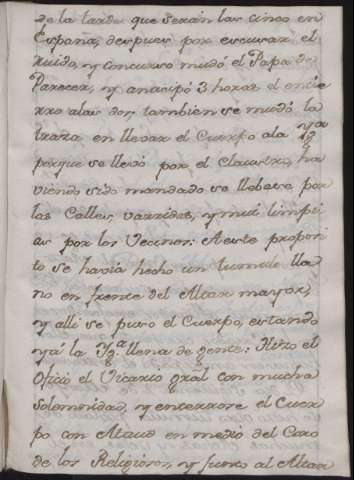 de la tarde que serán las cinco en
España, despues por escusar el
ruido, y concurso mudó el Papa de
Parecer, y anticipó 3 horas el entie
rro a las dos, tambien se mudó la
traza en llevar el Cuerpo a la Yga
porque se llevó por el Claustro, ha
viendo sido mandado se llebase por
las Calles, varridas, y mui limpi
as por los Vecinos: A este proposi
to se havia hecho un tumulo lla
no en frente del Altar mayor,
y alli se puso el Cuerpo, estando
yá la Yg.ª llena de gente: Hizo el
Oficio el Vicario gral con mucha
Solemnidad, y enterrose el Cuer
po con Ataud en medio del Coro
de los Religiosos, y junto al Altar